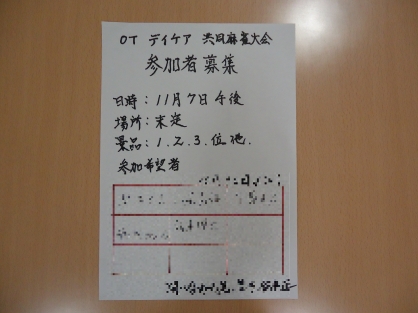 OT デイケア 共同麻雀大会
参加者募集
日時：11月7日午後
場所：未定
景品：1.2.3.位他.
参加希望者